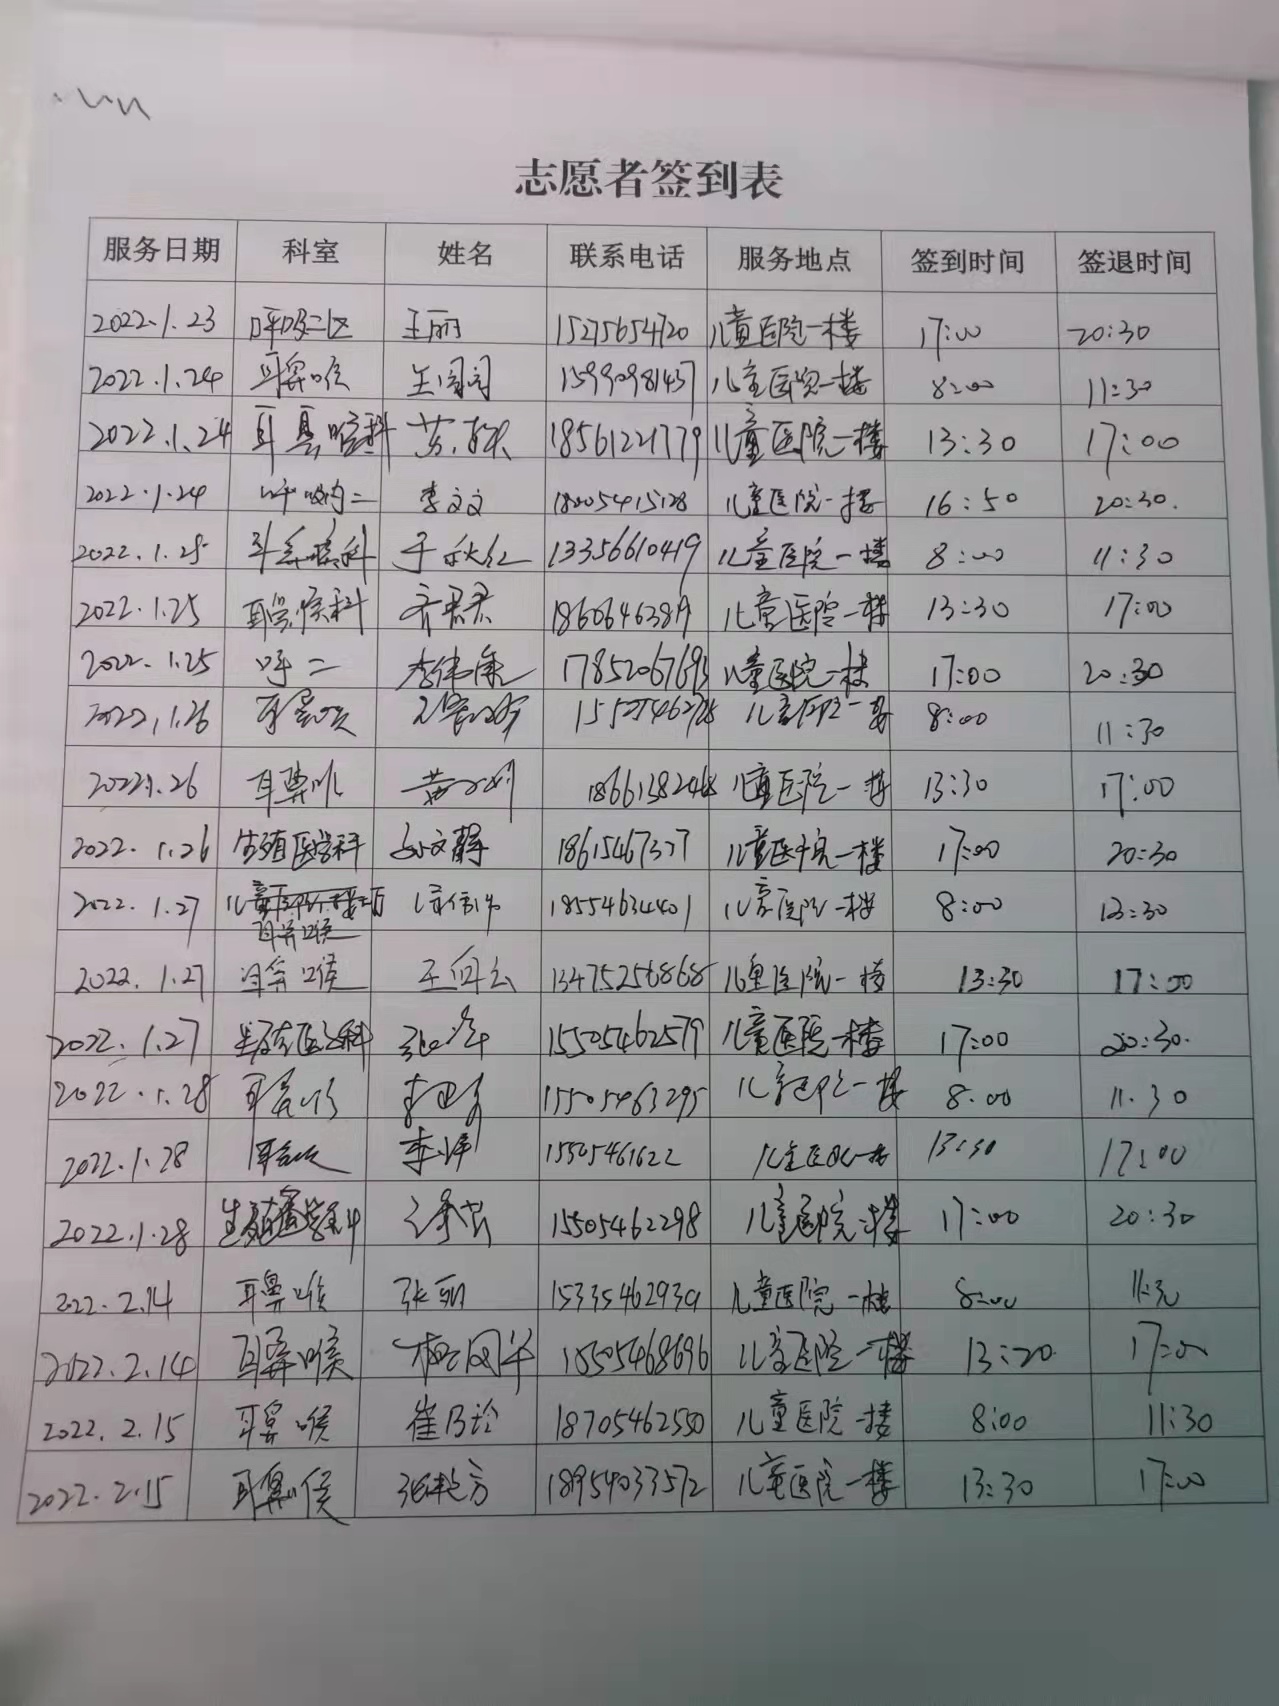 志愿者签到表
服务日期 科室 姓名 联系电话 服务地点 签到时间 签退时间
2022.1.23 呼吸二区 王丽 15275654720 儿童医院一楼 17:00 20:30
2022.1.24 耳鼻喉 王闰闰 15990981437 儿童医院一楼 8:00 11:30
2022.1.24 耳鼻喉科 18561221779 儿童医院一楼 13:30 17:00
2022.1.24 呼吸内二 李文文 18205415128 儿童医院一楼 16:50 20:30.
2022.1.25 耳鼻喉科 于秋红 13356610419 儿童医院一楼 8:00 11:30
2022.1.25 耳鼻喉科 齐君君 儿童医院一楼 13:30 17:00
2022.1.25 呼二 李伟康 儿童医院一楼 17:00 20:30
2022.1.26 耳鼻喉 儿童医院一楼 8:00 11:30
2022.1.26 耳鼻喉 儿童医院一楼 13:30 17:00
2022.1.26 生殖医学科 文静 儿童医院一楼 17:00 20:30
2022.1.27 耳鼻喉 18554634401 儿童医院一楼 8:00 13:30
2022.1.27 耳鼻喉 13475256868 儿童医院一楼 13:30 17:00
2022.1.27 生殖医学科 15505462579 儿童医院一楼 17:00 20:30.
2022.1.28 耳鼻喉 15505463295 儿童医院一楼 8:00 11:30
2022.1.28 耳鼻喉 李萍 15505461622 儿童医院一楼 13:30 17:00
2022.1.28 生殖医学科 15505462298 儿童医院一楼 17:00 20:30
2022.2.14 耳鼻喉 张丽 15335462939 儿童医院一楼 8:00 11:30
2022.2.14 耳鼻喉 15505468696 儿童医院一楼 13:20 17:00
2022.2.15 耳鼻喉 崔乃玲 18705462550 儿童医院一楼 8:00 11:30
2022.2.15 耳鼻喉 18954033572 儿童医院一楼 13:30 17:00